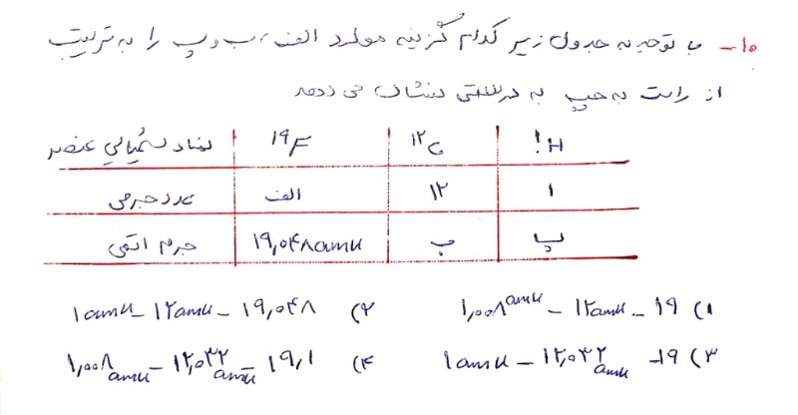 ۱۰- با توجه به جدول زیر کدام گزینه موارد الف، ب و پ را به ترتیب
از راست به چپ به درستی نشان می دهد
نماد شیمیایی عنصر | ¹⁹F | ¹²C | ¹H
عدد جرمی | الف | ۱۲ | ۱
جرم اتمی | ۱۹,۰۴۸amu | ب | پ
۱) ۱۹ - ۱۲amu - ۱,۰۰۸amu
۲) ۱۹,۰۴۸ - ۱۲amu - ۱amu
۳) ۱۹ - ۱۲,۰۳۲amu - ۱amu
۴) ۱۹,۱ - ۱۲,۰۳۲amu - ۱,۰۰۸amu